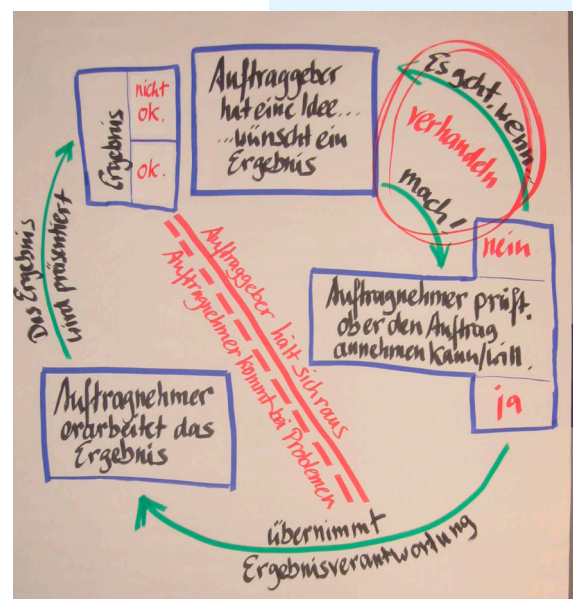 Auftraggeber
hat eine Idee...
...wünscht ein
Ergebnis
mach!
Es geht, wenn...
verhandeln
nein
Auftragnehmer prüft.
ob er den Auftrag
annehmen kann/will.
ja
übernimmt
Ergebnisverantwortung
Auftragnehmer
erarbeitet das
Ergebnis
Das Ergebnis
wird präsentiert
Ergebnis
nicht
ok.
ok.
Auftraggeber hält sich raus
Auftragnehmer kommt bei Problemen